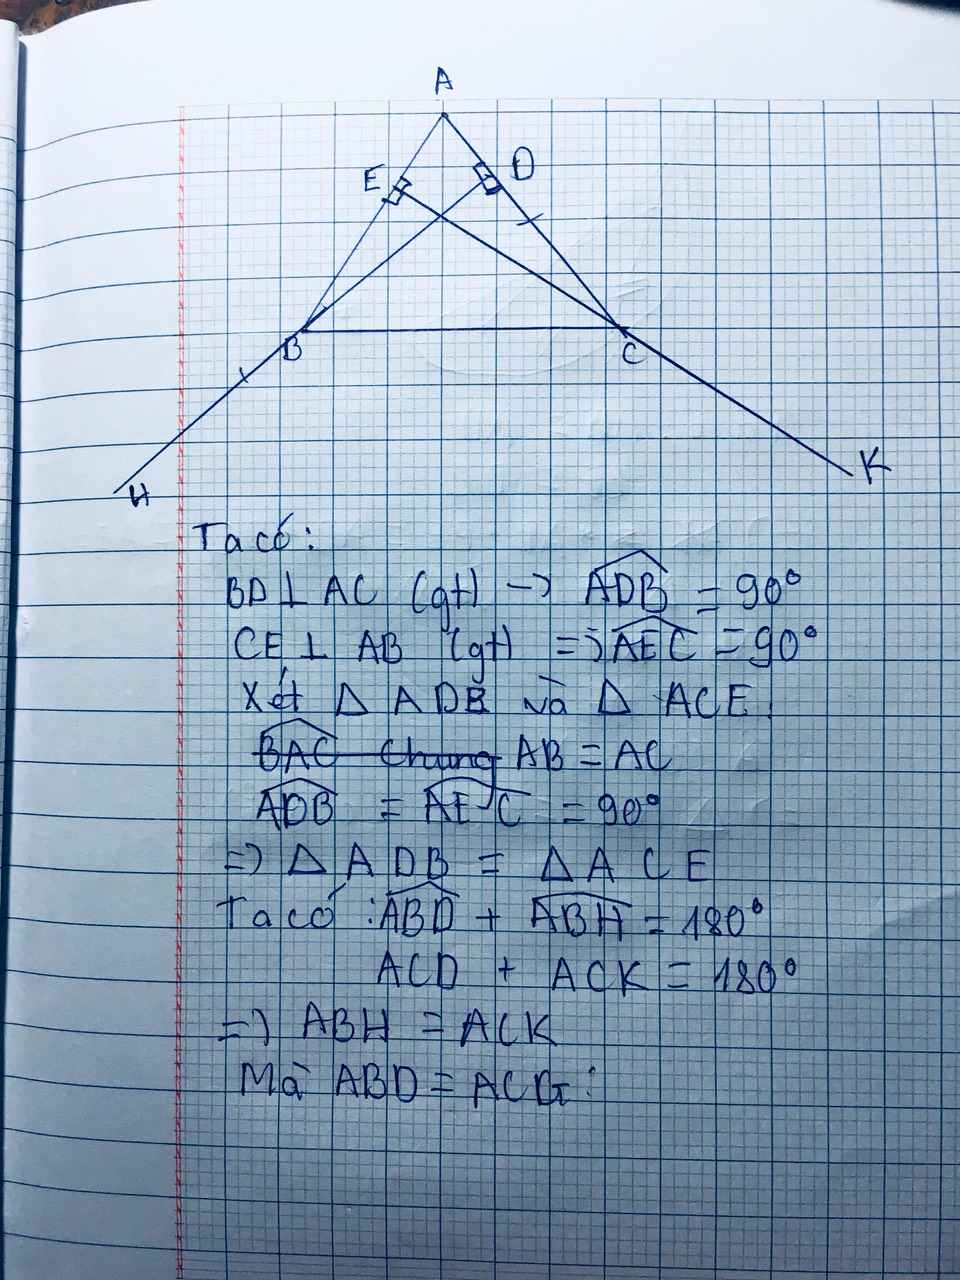 A
E
D
B
C
H
K
Ta có:
BD ⊥ AC (gt) → ADB = 90°
CE ⊥ AB (gt) => AEC = 90°
Xét Δ ADB và Δ ACE:
BAC chung AB = AC
ADB = AEC = 90°
=> Δ ADB = Δ ACE
Ta có: ABD + ABH = 180°
ACD + ACK = 180°
=> ABH = ACK
Mà ABD =